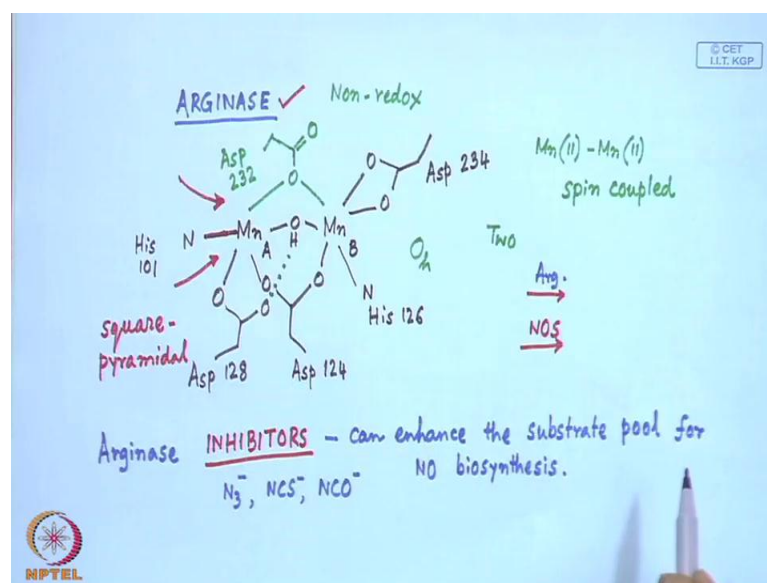 © CET
I.I.T. KGP
ARGINASE ✓ Non-redox
O
Asp
232
O
O
O
Asp 234
Mn(II) - Mn(II)
spin coupled
His
101
N
Mn
A
O
H
Mn
B
Oh
Two
Arg.
NOS
O
O
O
O
N
His 126
square-
pyramidal
Asp 128
Asp 124
Arginase INHIBITORS - can enhance the substrate pool for
NO biosynthesis.
N3-, NCS-, NCO-
NPTEL